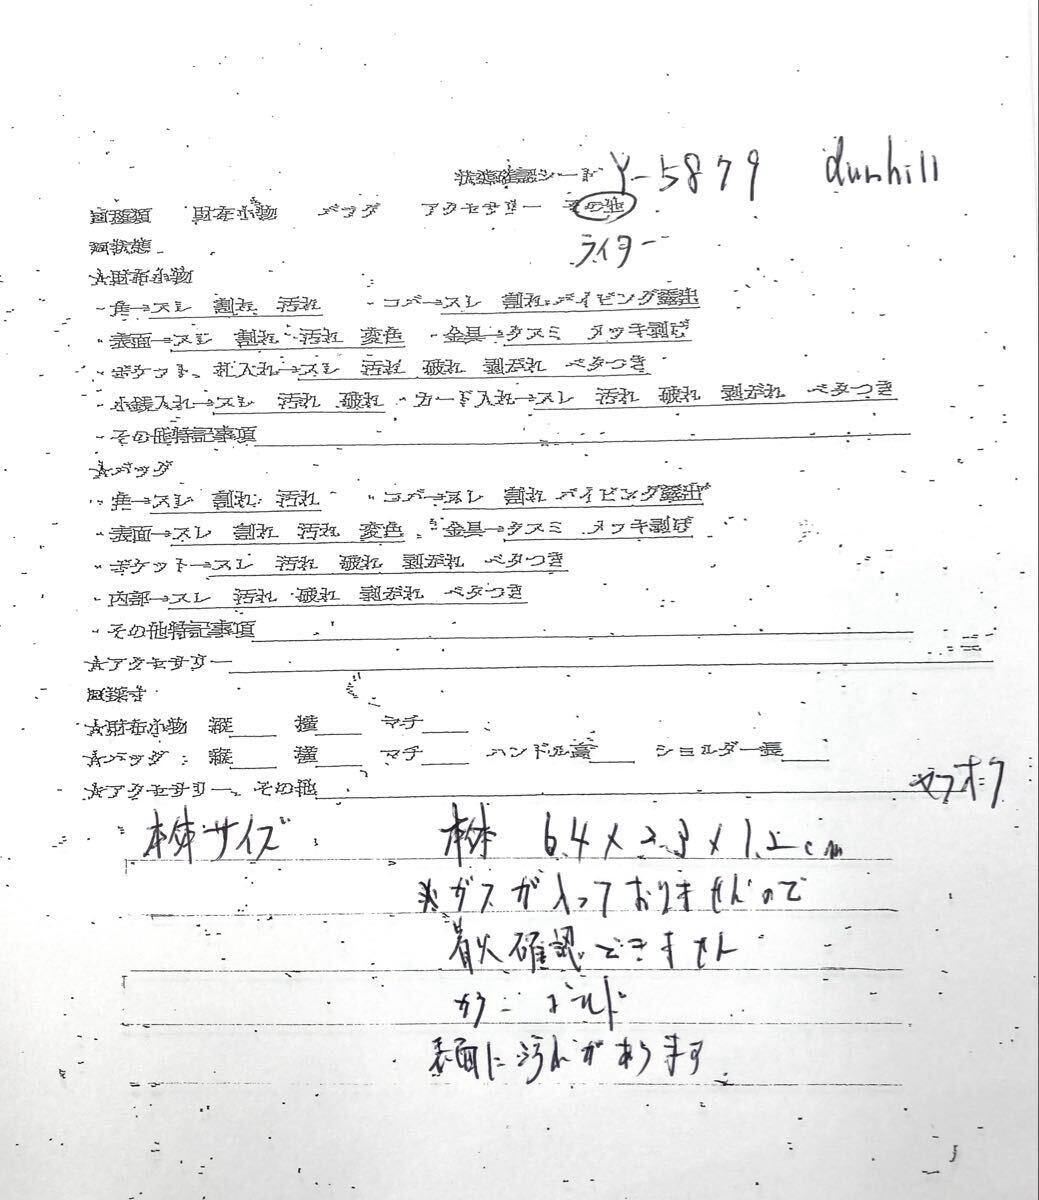 状態確認シート Y-5879 dunhill
□種類 財布小物 バッグ アクセサリー その他
ライター
□状態
★財布小物
・角→スレ 割れ 汚れ ・コバ→スレ 割れ パイピング露出
・表面→スレ 割れ 汚れ 変色 ・金具→クスミ メッキ剥げ
・ポケット、札入れ→スレ 汚れ 破れ 剥がれ ベタつき
・小銭入れ→スレ 汚れ 破れ ・カード入れ→スレ 汚れ 破れ 剥がれ ベタつき
・その他特記事項
★バッグ
・角→スレ 割れ 汚れ ・コバ→スレ 割れ パイピング露出
・表面→スレ 割れ 汚れ 変色 ・金具→クスミ メッキ剥げ
・ポケット→スレ 汚れ 破れ 剥がれ ベタつき
・内部→スレ 汚れ 破れ 剥がれ ベタつき
・その他特記事項
★アクセサリー
□採寸
★財布小物 縦 横 マチ
★バッグ 縦 横 マチ ハンドル高 ショルダー長
★アクセサリー、その他
ヤフオク
本体サイズ 本体 6.4×2.3×1.2cm
※ガスが入っておりませんので
着火確認できません
カラー ゴールド
表面に汚れがあります